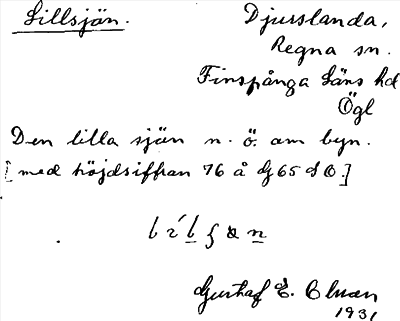 Lillsjön.
Djurslanda,
Regna sn.
Finspånga läns hd
Ögl
Den lilla sjön n. ö. om byn.
[med höjdsiffran 76 å Gj65 d Ö.]
Gustaf E.
1931